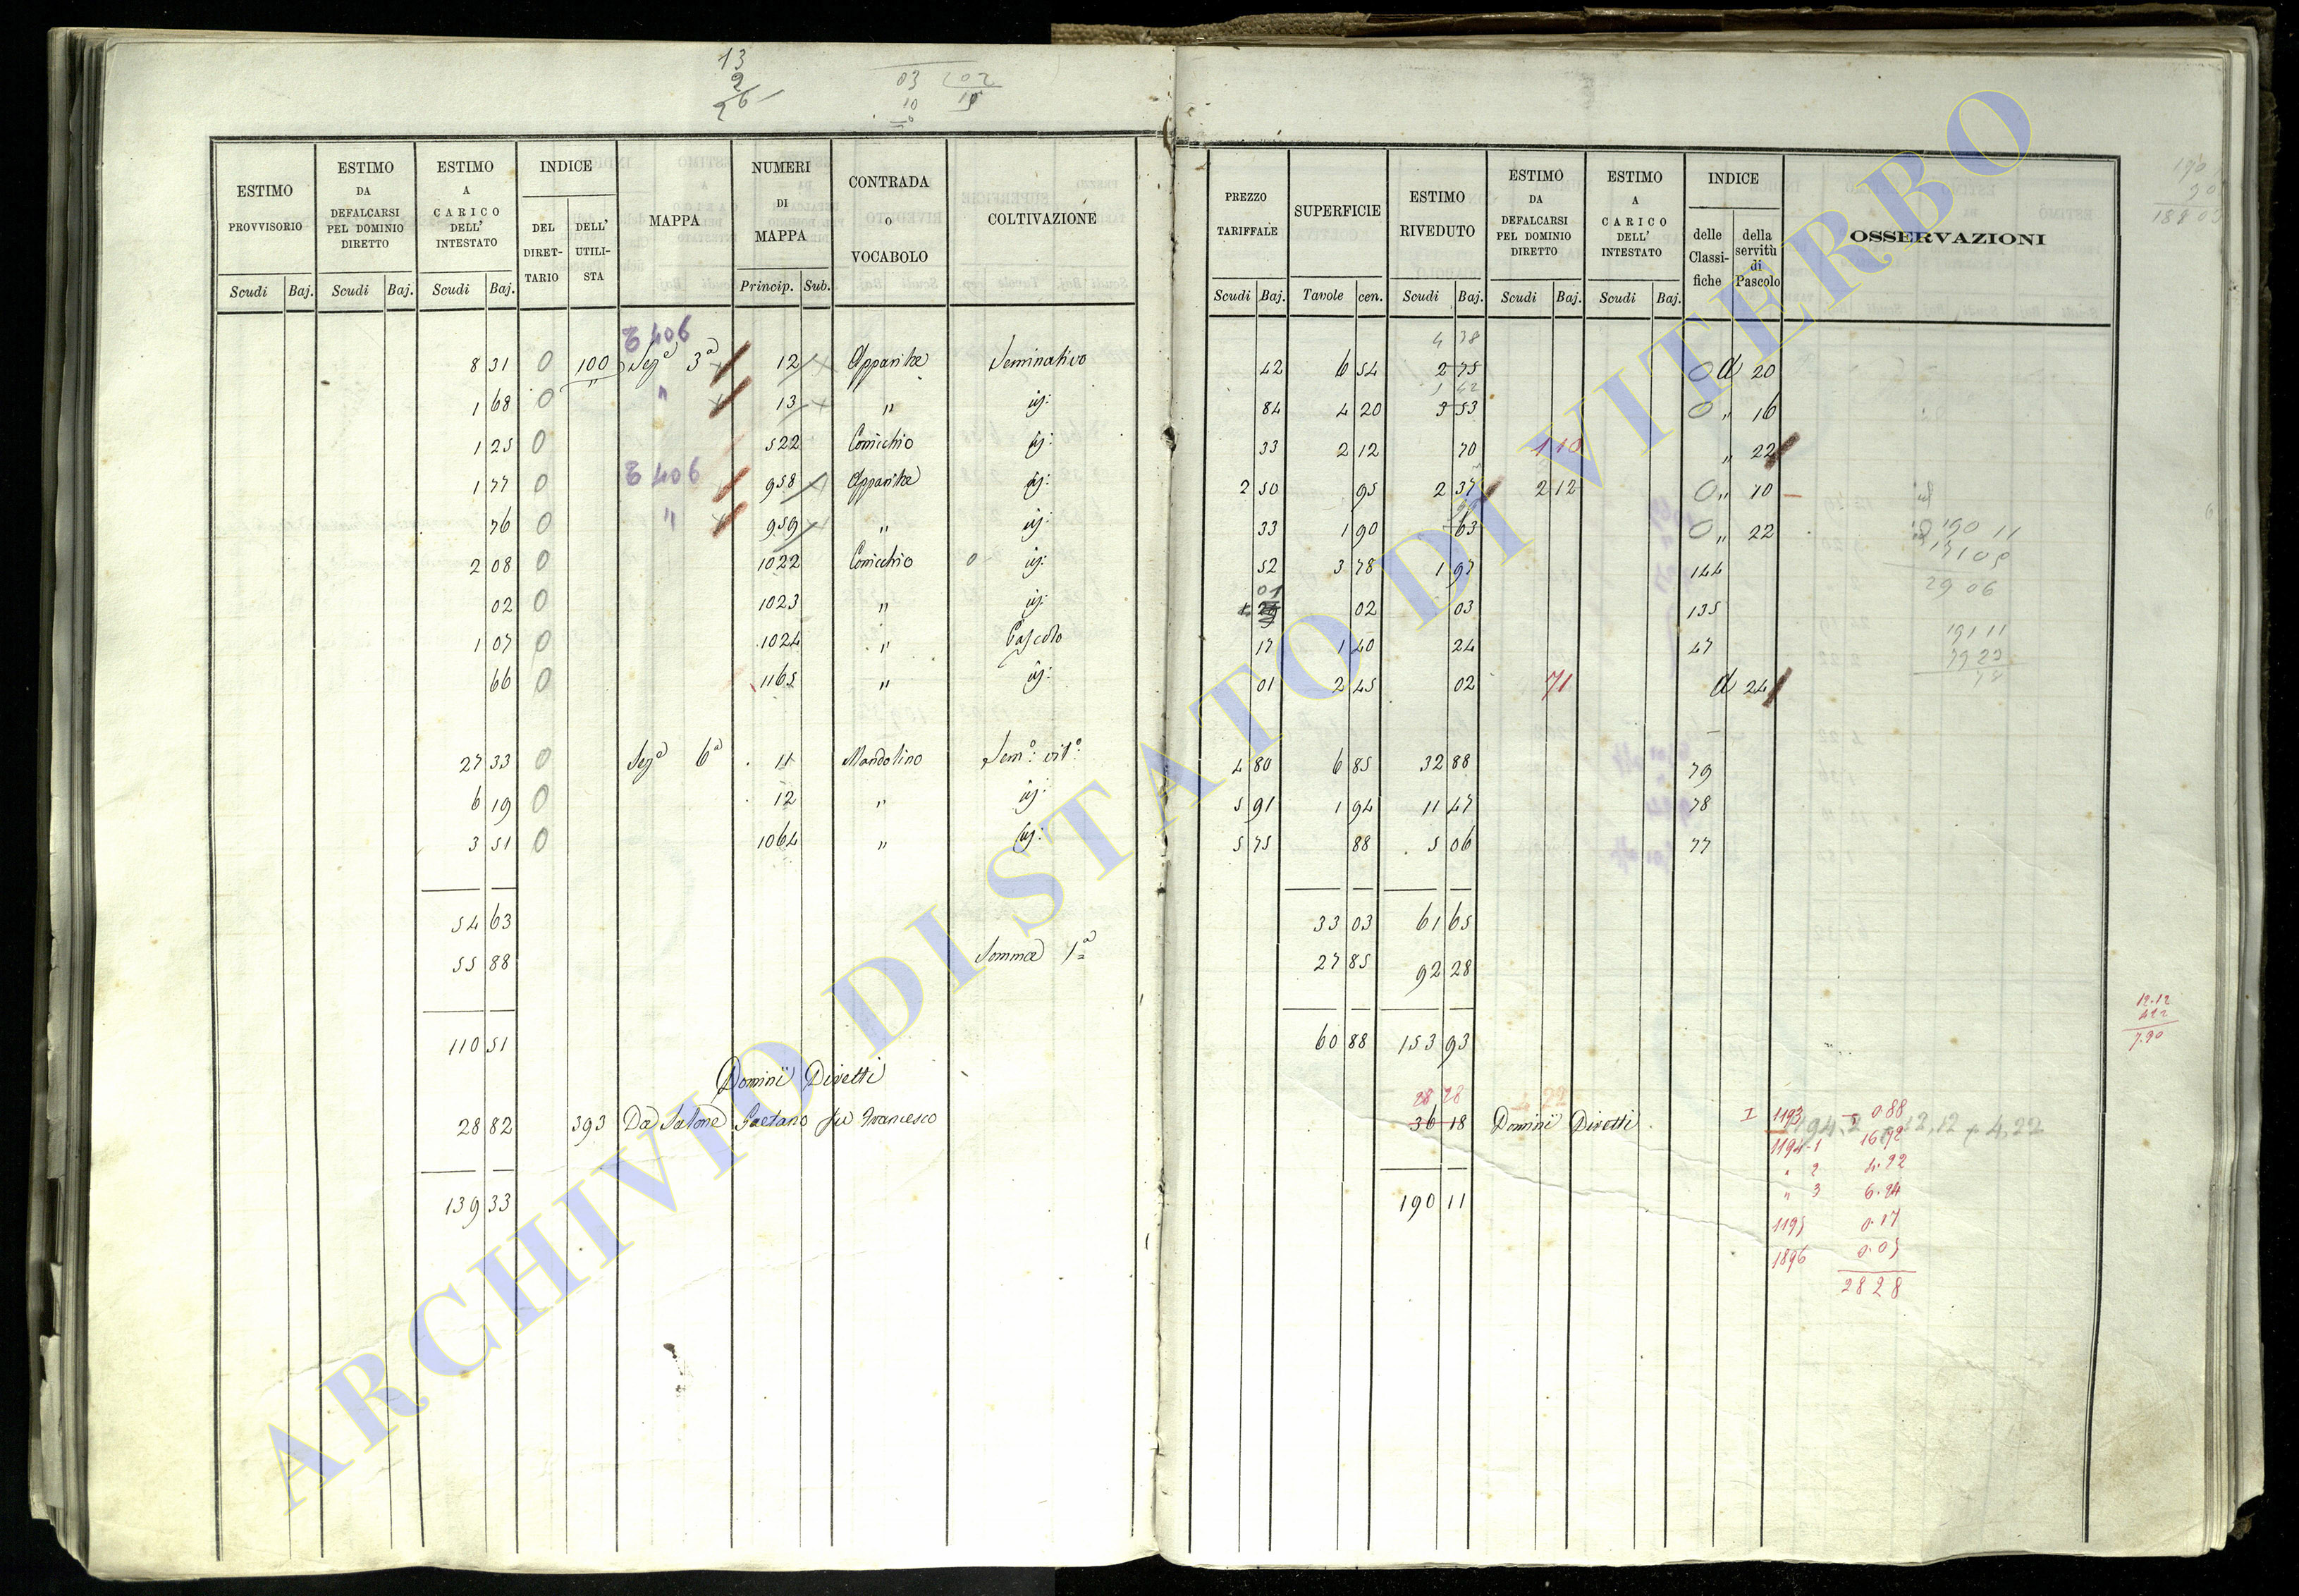 13
9
26
03 202
10 15
ESTIMO PROVVISORIO
ESTIMO DA DEFALCARSI PEL DOMINIO DIRETTO
ESTIMO A CARICO DELL' INTESTATO
INDICE
DEL DIRET-TARIO
DELL' UTILI-STA
MAPPA
NUMERI DI MAPPA
CONTRADA o VOCABOLO
COLTIVAZIONE
Scudi Baj. Scudi Baj. Scudi Baj. Princip. Sub.
E 406
8 31 0 100 Sezª 3ª 12 Apparita Seminativo
1 68 0 " " 13 " id:
1 25 0 522 Conicchio id:
1 77 0 E 406 958 Apparita id:
76 0 " 959 " id:
2 08 0 1022 Conicchio 0 id:
02 0 1023 " id:
1 07 0 1024 " Pascolo
66 0 1165 " id:
27 33 0 Sezª 6ª 11 Mandolino Semº: vitº:
6 19 0 12 " id:
3 51 0 1064 " id:
54 63
55 88 Somma 1ª
110 51
Dominii Diretti
28 82 393 Da Salone Gaetano fu Francesco
139 33
PREZZO TARIFFALE
SUPERFICIE
ESTIMO RIVEDUTO
ESTIMO DA DEFALCARSI PEL DOMINIO DIRETTO
ESTIMO A CARICO DELL' INTESTATO
INDICE
delle Classi-fiche
della servitù di Pascolo
OSSERVAZIONI
Scudi Baj. Tavole cen. Scudi Baj. Scudi Baj. Scudi Baj.
4 38
42 6 54 2 75 0 d 20
1 42
84 4 20 3 53 0 " 16
33 2 12 70 1 10 " 22
2 50 95 2 37 2 12 0 " 70
33 1 90 63 0 " 22
190 11
52 3 78 1 97 144
01
02 03 135
29 06
17 1 40 24 47
191 11
01 2 45 02 71 d 24
4 80 6 85 32 88 79
5 91 1 94 11 47 78
5 75 88 5 06 77
33 03 61 65
27 85 92 28
60 88 153 93
12.12
4 22
7.90
28 28 4 22
36 18 Dominii Diretti
I 1193 - 0.88
194. 2 12,12 4,22
1194-1 16.92
" 2 4.22
" 3 6.24
1195 0.17
1896 0.05
28 28
190 11
ARCHIVIO DI STATO DI VITERBO